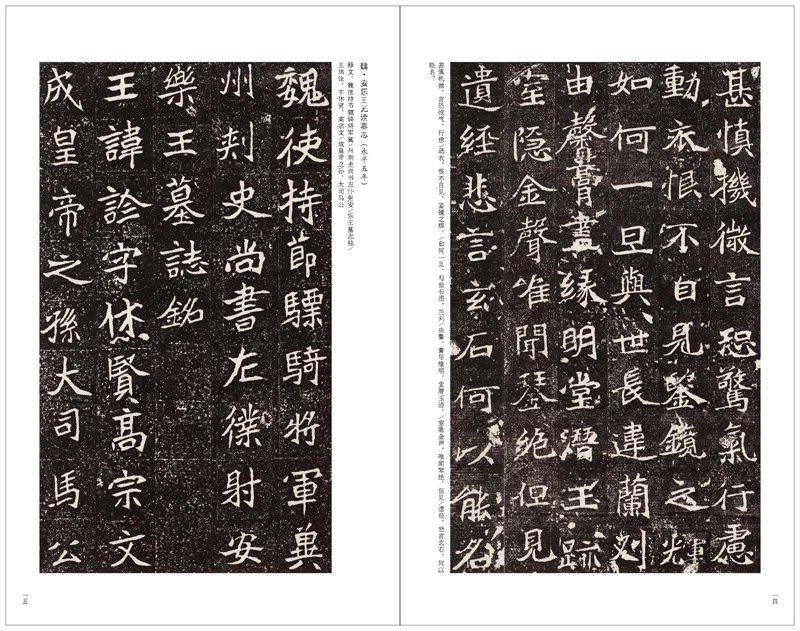 甚慎機微言恐驚氣行慮
動衣恨不自見鉴鏡之輝
如何一旦與世長違蘭刈
由馨膏盡緣明堂潛玉跡
室隐金聲唯聞琴絶但見
遺經悲言玄石何以能名
甚慎机微，言恐惊气，行虑/动衣，恨不自见，鉴镜之辉。/如何一旦，与世长违，兰刈/由馨，膏尽缘明，堂潜玉迹，/室隐金声，唯闻琴绝，但见/遗经，悲言玄石，何以
能名？
一四
魏·安乐王元诠墓志（永平五年）
释文：魏使持节骠骑将军冀/州刺史尚书左仆射安/乐王墓志铭/
王讳诠，字休贤，高宗文/成皇帝之孙，大司马公
魏使持節驃騎將軍兾
州刾史尚書左僕射安
樂王墓誌銘
王諱詮字休賢高宗文
成皇帝之孫大司馬公
一五